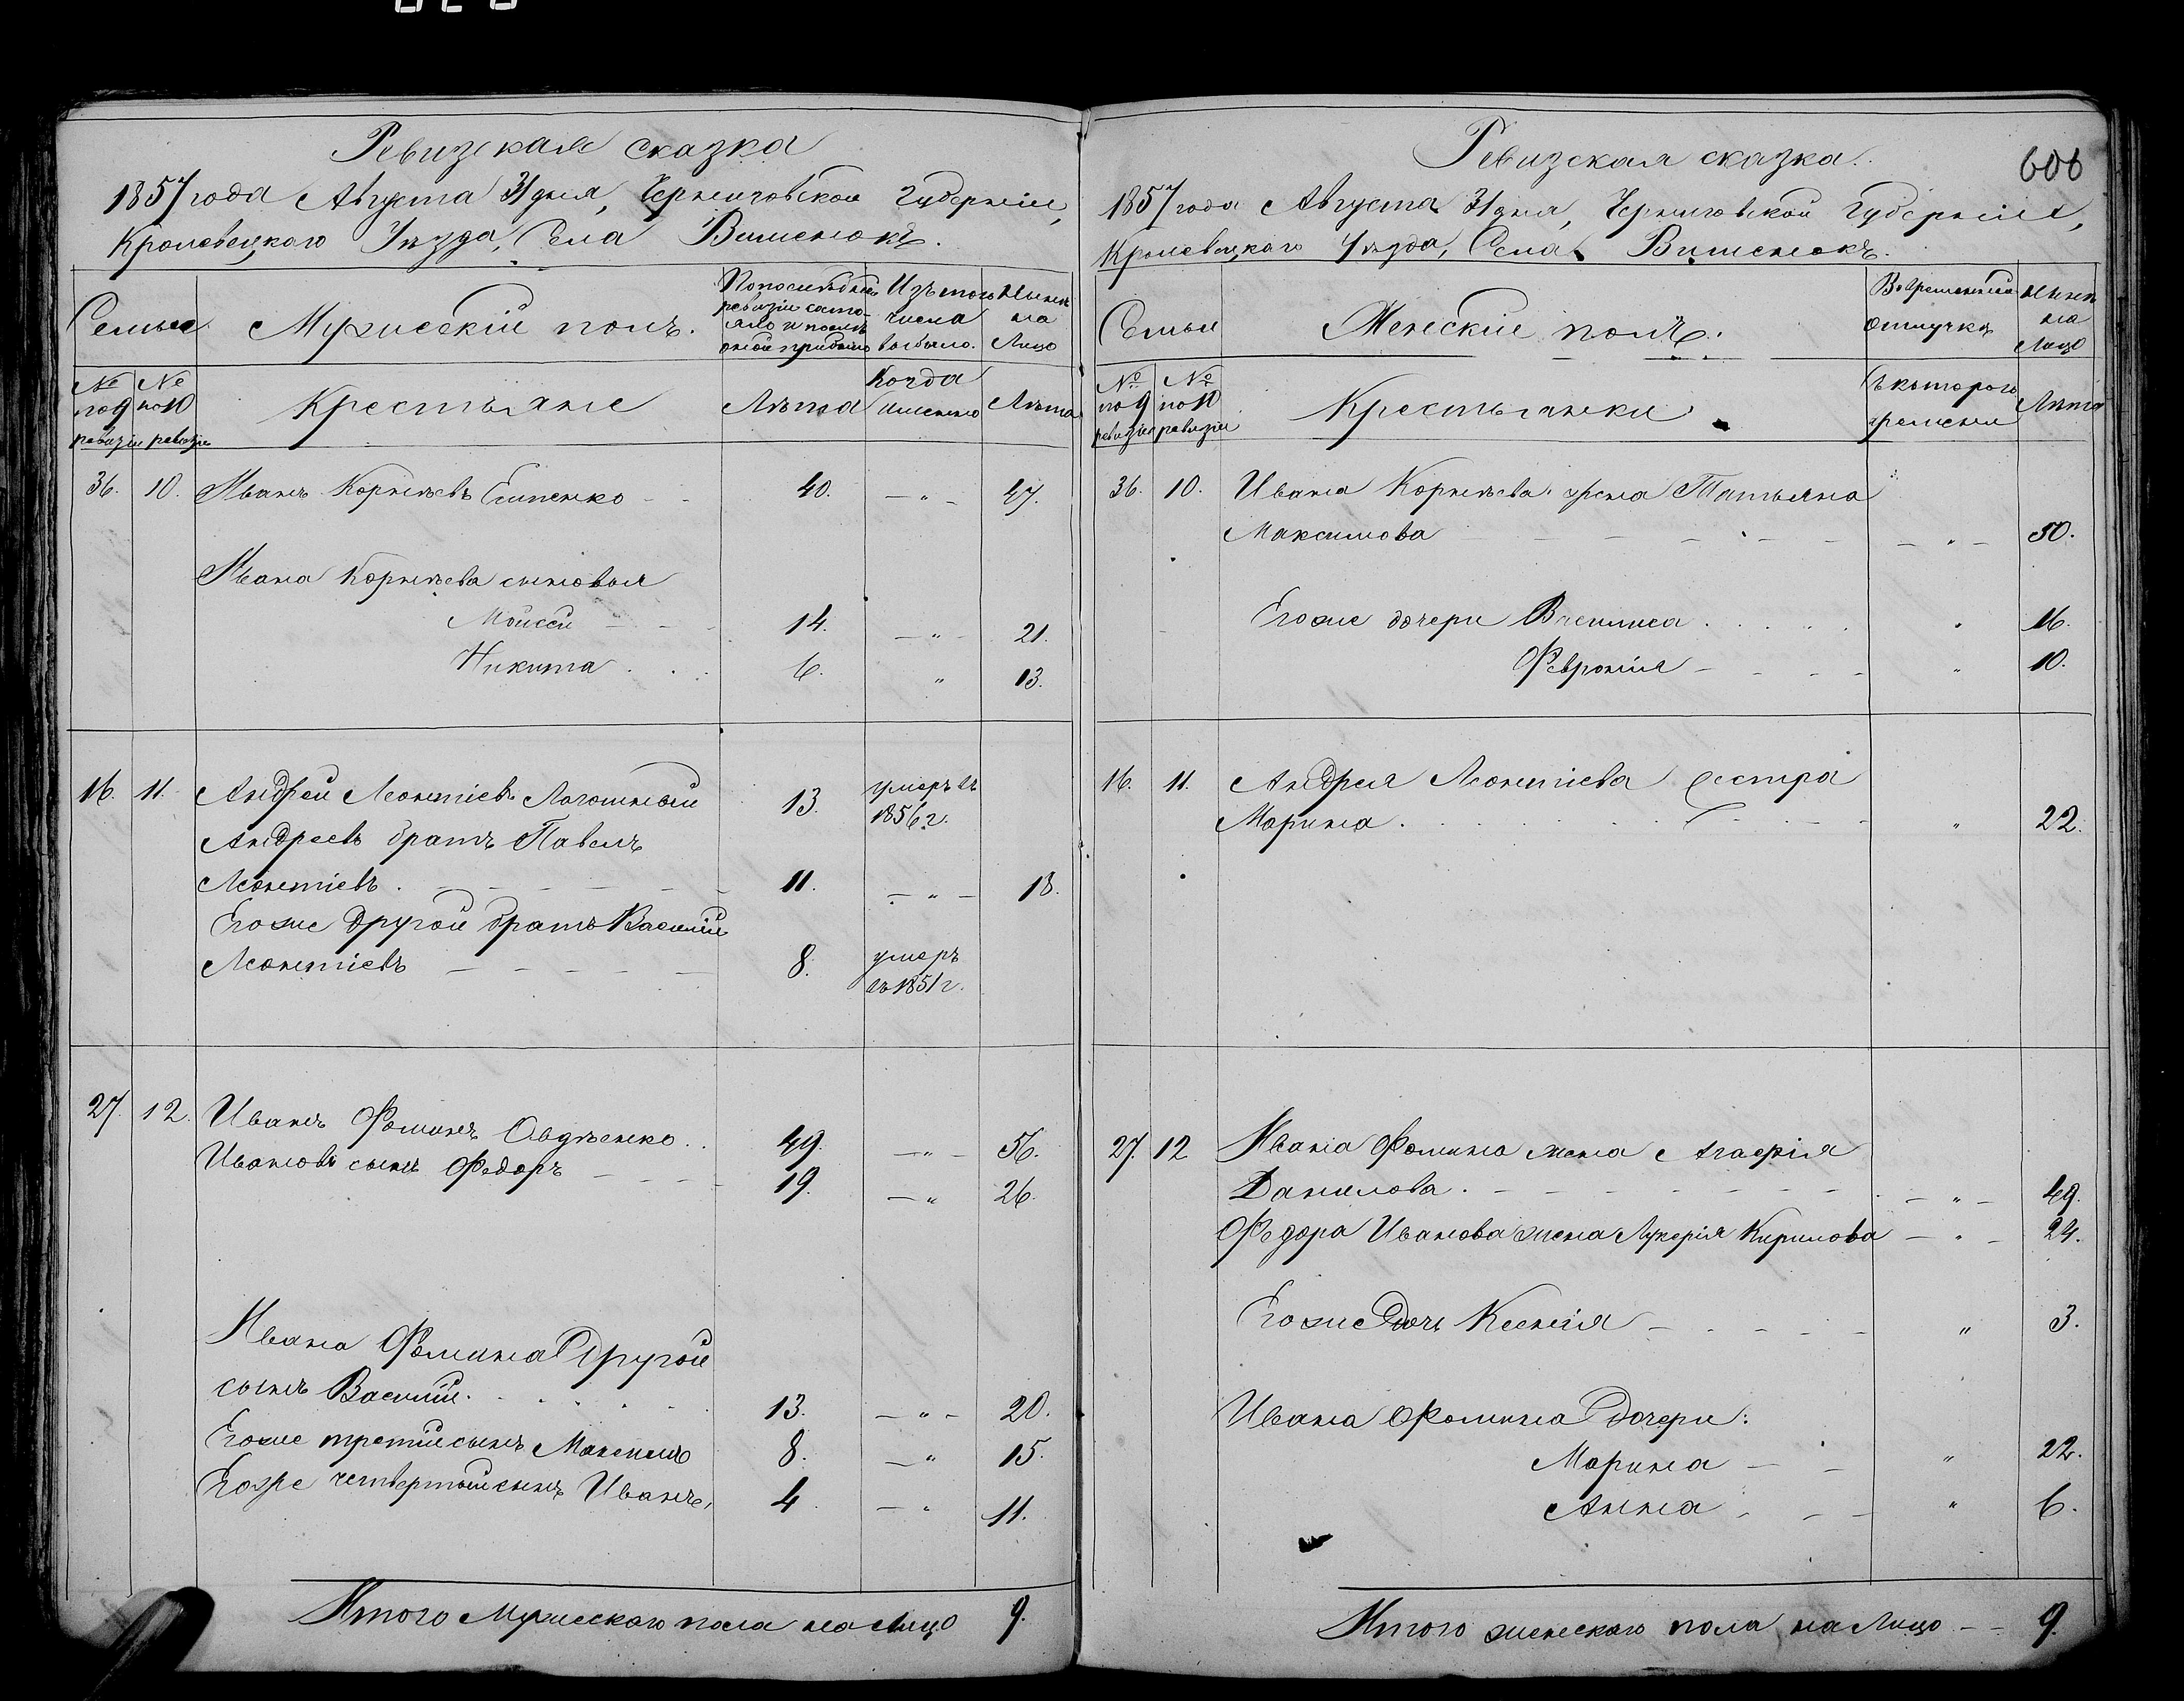 Ревизская сказка
1857 года Августа 31 дня, Черниговской Губерніи,
Кролевецкаго Уѣзда, Села Вишенокъ.
Семьи
Мужескій полъ.
По последней ревизіи состояло и послѣ оной прибыло
Изъ того числа выбыло.
Нынѣ на Лицо
№ по 9 ревизіи
№ по 10 ревизіи
Крестьяне
Лѣта
Когда именно
Лѣта
36. 10. Иванъ Корнѣевъ Есипенко 40. — " — 47.
Ивана Корнѣева сыновья
Моисей 14. — " — 21.
Никита 6. " 13.
16. 11. Андрей Леонтіевъ Логошный 13. умеръ въ 1856 г.
Андреевъ братъ Павелъ
Леонтіевъ. 11. — " — 18.
Егоже другой братъ Василій
Леонтіевъ 8. умеръ въ 1851 г.
27. 12. Иванъ Фоминъ Овдѣенко 49. — " — 56.
Ивановъ сынъ Федоръ 19. — " 26.
Ивана Фомина другой
сынъ Василій. 13. — " — 20.
Егоже третій сынъ Максимъ 8. — " 15.
Егоже четвертый сынъ Иванъ, 4. — " 11.
Итого Мужескаго пола на Лицо 9.
Ревизская сказка.
606
1857 года Августа 31 дня, Черниговской Губерніи,
Кролевецкаго Уѣзда, Села Вишенокъ.
Семьи
Женскій полъ.
Во временной отлучкѣ
Нынѣ на Лицо
№ по 9 ревизіи
№ по 10 ревизіи
Крестьянки
Съ котораго времени
Лѣта
36. 10. Ивана Корнѣева жена Татьяна
Максимова — " — 50.
Егоже дочери Василиса " 16.
Февронія " 10.
16. 11. Андрея Леонтіева сестра
Марина. " 22.
27. 12 Ивана Фомина жена Агафія
Данилова. — " — 49.
Федора Иванова жена Лукерія Кирилова — " — 24.
Егоже дочь Ксенія " 3.
Ивана Фомина дочери:
Марина " 22.
Анна " 6.
Итого женскаго пола на Лицо — — 9.